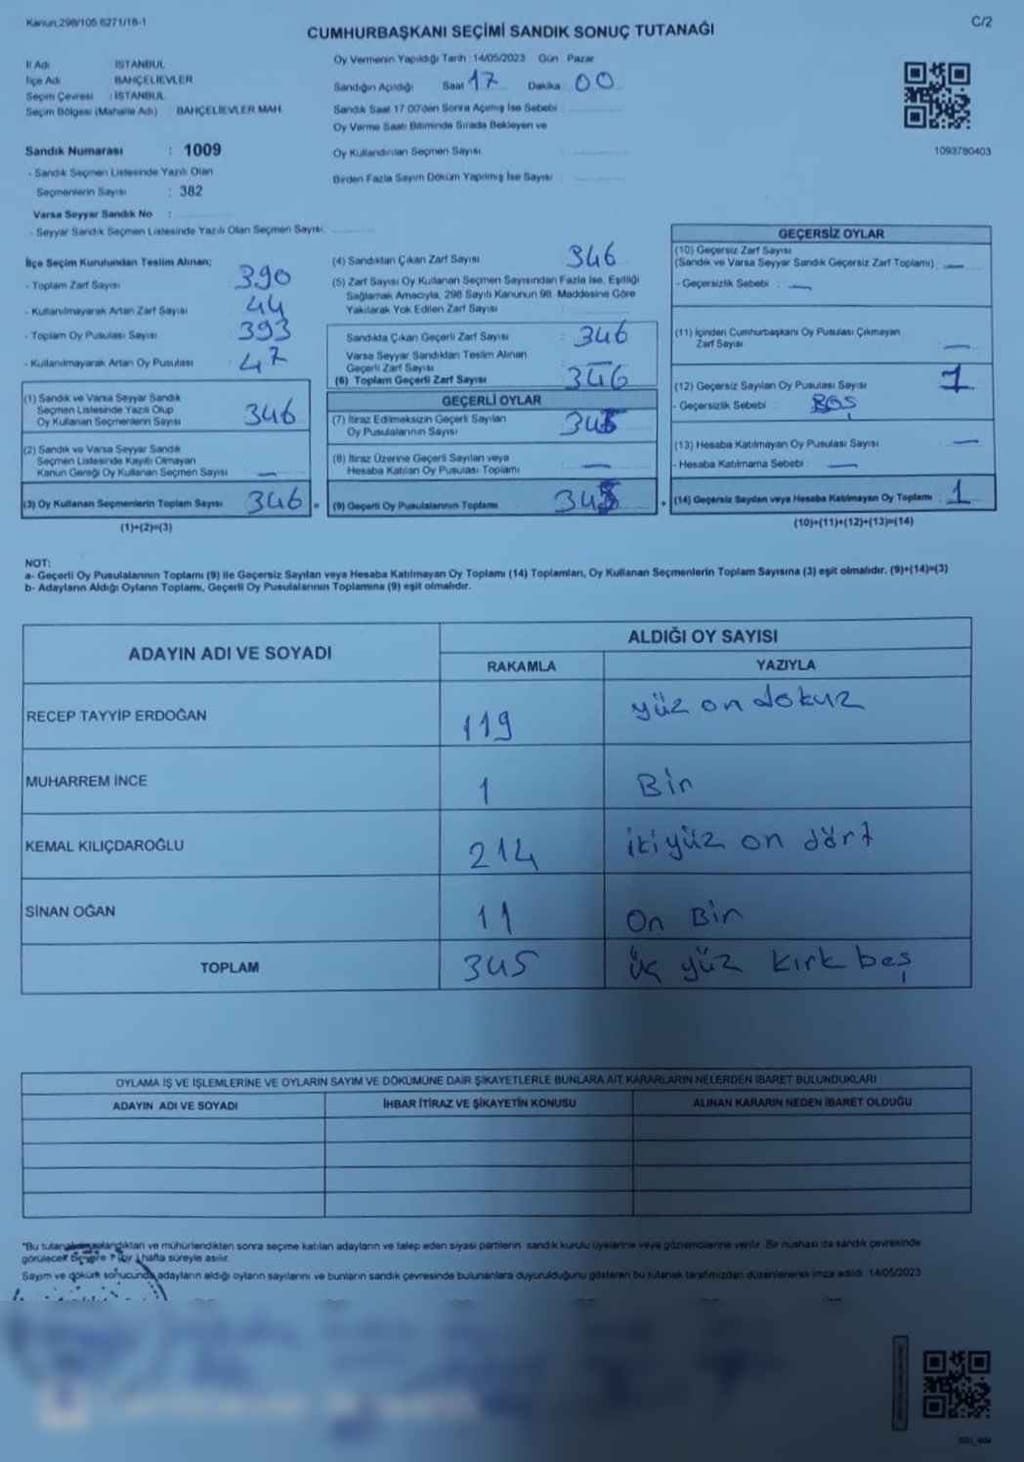 Kanun 298/105 6271/18-1
C/2
CUMHURBAŞKANI SEÇİMİ SANDIK SONUÇ TUTANAĞI
İl Adı : İSTANBUL
İlçe Adı : BAHÇELİEVLER
Seçim Çevresi : İSTANBUL
Seçim Bölgesi (Mahalle Adı) : BAHÇELİEVLER MAH.
Oy Vermenin Yapıldığı Tarih : 14/05/2023 Gün : Pazar
Sandığın Açıldığı Saat 17 Dakika 00
Sandık Saat 17.00'den Sonra Açılmış İse Sebebi
Oy Verme Saati Bitiminde Sırada Bekleyen ve
Oy Kullandırılan Seçmen Sayısı
Birden Fazla Sayım Döküm Yapılmış İse Sayısı :
1093780403
Sandık Numarası : 1009
- Sandık Seçmen Listesinde Yazılı Olan
Seçmenlerin Sayısı : 382
Varsa Seyyar Sandık No :
- Seyyar Sandık Seçmen Listesinde Yazılı Olan Seçmen Sayısı:
İlçe Seçim Kurulundan Teslim Alınan;
- Toplam Zarf Sayısı : 390
- Kullanılmayarak Artan Zarf Sayısı : 44
- Toplam Oy Pusulası Sayısı : 393
- Kullanılmayarak Artan Oy Pusulası : 47
(1) Sandık ve Varsa Seyyar Sandık
Seçmen Listesinde Yazılı Olup
Oy Kullanan Seçmenlerin Sayısı 346
(2) Sandık ve Varsa Seyyar Sandık
Seçmen Listesinde Kayıtlı Olmayan
Kanun Gereği Oy Kullanan Seçmen Sayısı —
(3) Oy Kullanan Seçmenlerin Toplam Sayısı 346 =
(1)+(2)=(3)
(4) Sandıktan Çıkan Zarf Sayısı 346
(5) Zarf Sayısı Oy Kullanan Seçmen Sayısından Fazla İse, Eşitliği
Sağlamak Amacıyla, 298 Sayılı Kanunun 98. Maddesine Göre
Yakılarak Yok Edilen Zarf Sayısı :
Sandıkta Çıkan Geçerli Zarf Sayısı : 346
Varsa Seyyar Sandıktan Teslim Alınan
Geçerli Zarf Sayısı
(6) Toplam Geçerli Zarf Sayısı 346
GEÇERLİ OYLAR
(7) İtiraz Edilmeksizin Geçerli Sayılan
Oy Pusulalarının Sayısı 345
(8) İtiraz Üzerine Geçerli Sayılan veya
Hesaba Katılan Oy Pusulası Toplamı —
(9) Geçerli Oy Pusulalarının Toplamı 345 +
GEÇERSİZ OYLAR
(10) Geçersiz Zarf Sayısı
(Sandık ve Varsa Seyyar Sandık Geçersiz Zarf Toplamı) : —
- Geçersizlik Sebebi : —
(11) İçinden Cumhurbaşkanı Oy Pusulası Çıkmayan
Zarf Sayısı —
(12) Geçersiz Sayılan Oy Pusulası Sayısı 1
- Geçersizlik Sebebi : BOŞ
(13) Hesaba Katılmayan Oy Pusulası Sayısı —
- Hesaba Katılmama Sebebi : —
(14) Geçersiz Sayılan veya Hesaba Katılmayan Oy Toplamı 1
(10)+(11)+(12)+(13)=(14)
NOT:
a- Geçerli Oy Pusulalarının Toplamı (9) ile Geçersiz Sayılan veya Hesaba Katılmayan Oy Toplamı (14) Toplamları, Oy Kullanan Seçmenlerin Toplam Sayısına (3) eşit olmalıdır. (9)+(14)=(3)
b- Adayların Aldığı Oyların Toplamı, Geçerli Oy Pusulalarının Toplamına (9) eşit olmalıdır.
ADAYIN ADI VE SOYADI
ALDIĞI OY SAYISI
RAKAMLA YAZIYLA
RECEP TAYYİP ERDOĞAN 119 yüz on dokuz
MUHARREM İNCE 1 Bir
KEMAL KILIÇDAROĞLU 214 iki yüz on dört
SİNAN OĞAN 11 On Bir
TOPLAM 345 üç yüz kırk beş
OYLAMA İŞ VE İŞLEMLERİNE VE OYLARIN SAYIM VE DÖKÜMÜNE DAİR ŞİKAYETLERLE BUNLARA AİT KARARLARIN NELERDEN İBARET BULUNDUKLARI
ADAYIN ADI VE SOYADI İHBAR İTİRAZ VE ŞİKAYETİN KONUSU ALINAN KARARIN NEDEN İBARET OLDUĞU
ve mühürlendikten sonra seçime katılan adayların ve talep eden siyasi partilerin sandık kurulu üyelerine veya gözlemcilerine verilir. Bir nüshası da sandık çevresinde
görülecek bir yere 1 (bir) hafta süreyle asılır.
Sayım ve döküm sonucunda adayların aldığı oyların sayılarını ve bunların sandık çevresinde bulunanlara duyurulduğunu gösteren bu tutanak tarafımızdan düzenlenerek imza edildi. 14/05/2023